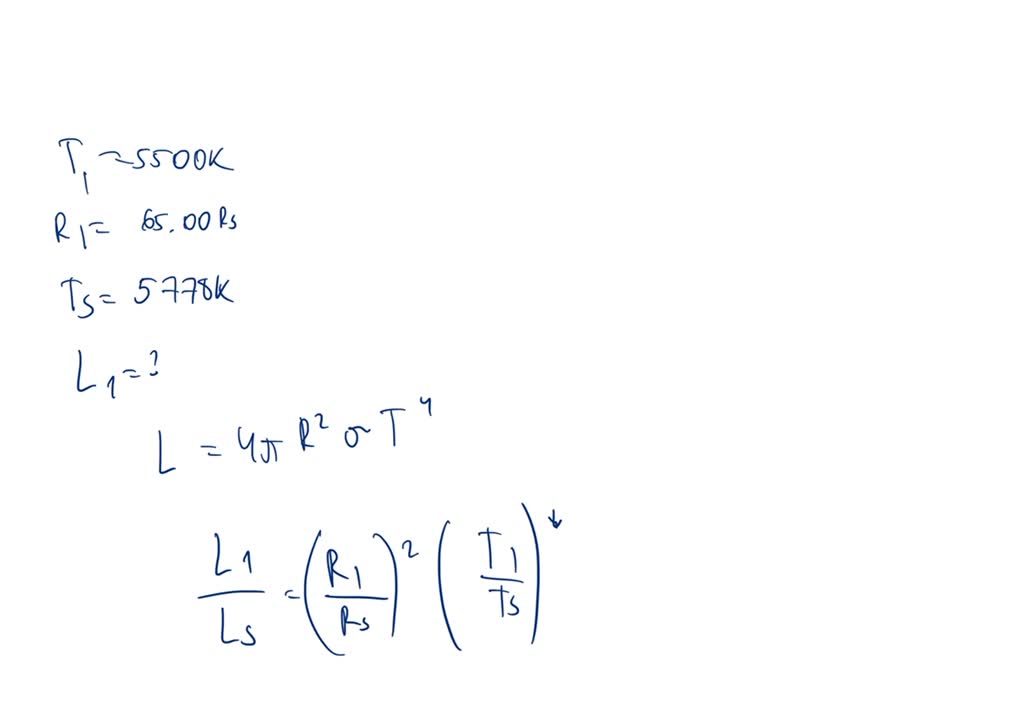 T₁ = 5500K
R₁ = 65.00 Rs
Ts = 5778K
L₁ = ?
L = 4π R² σ T⁴
L₁/Ls = (R₁/Rs)² (T₁/Ts)⁴